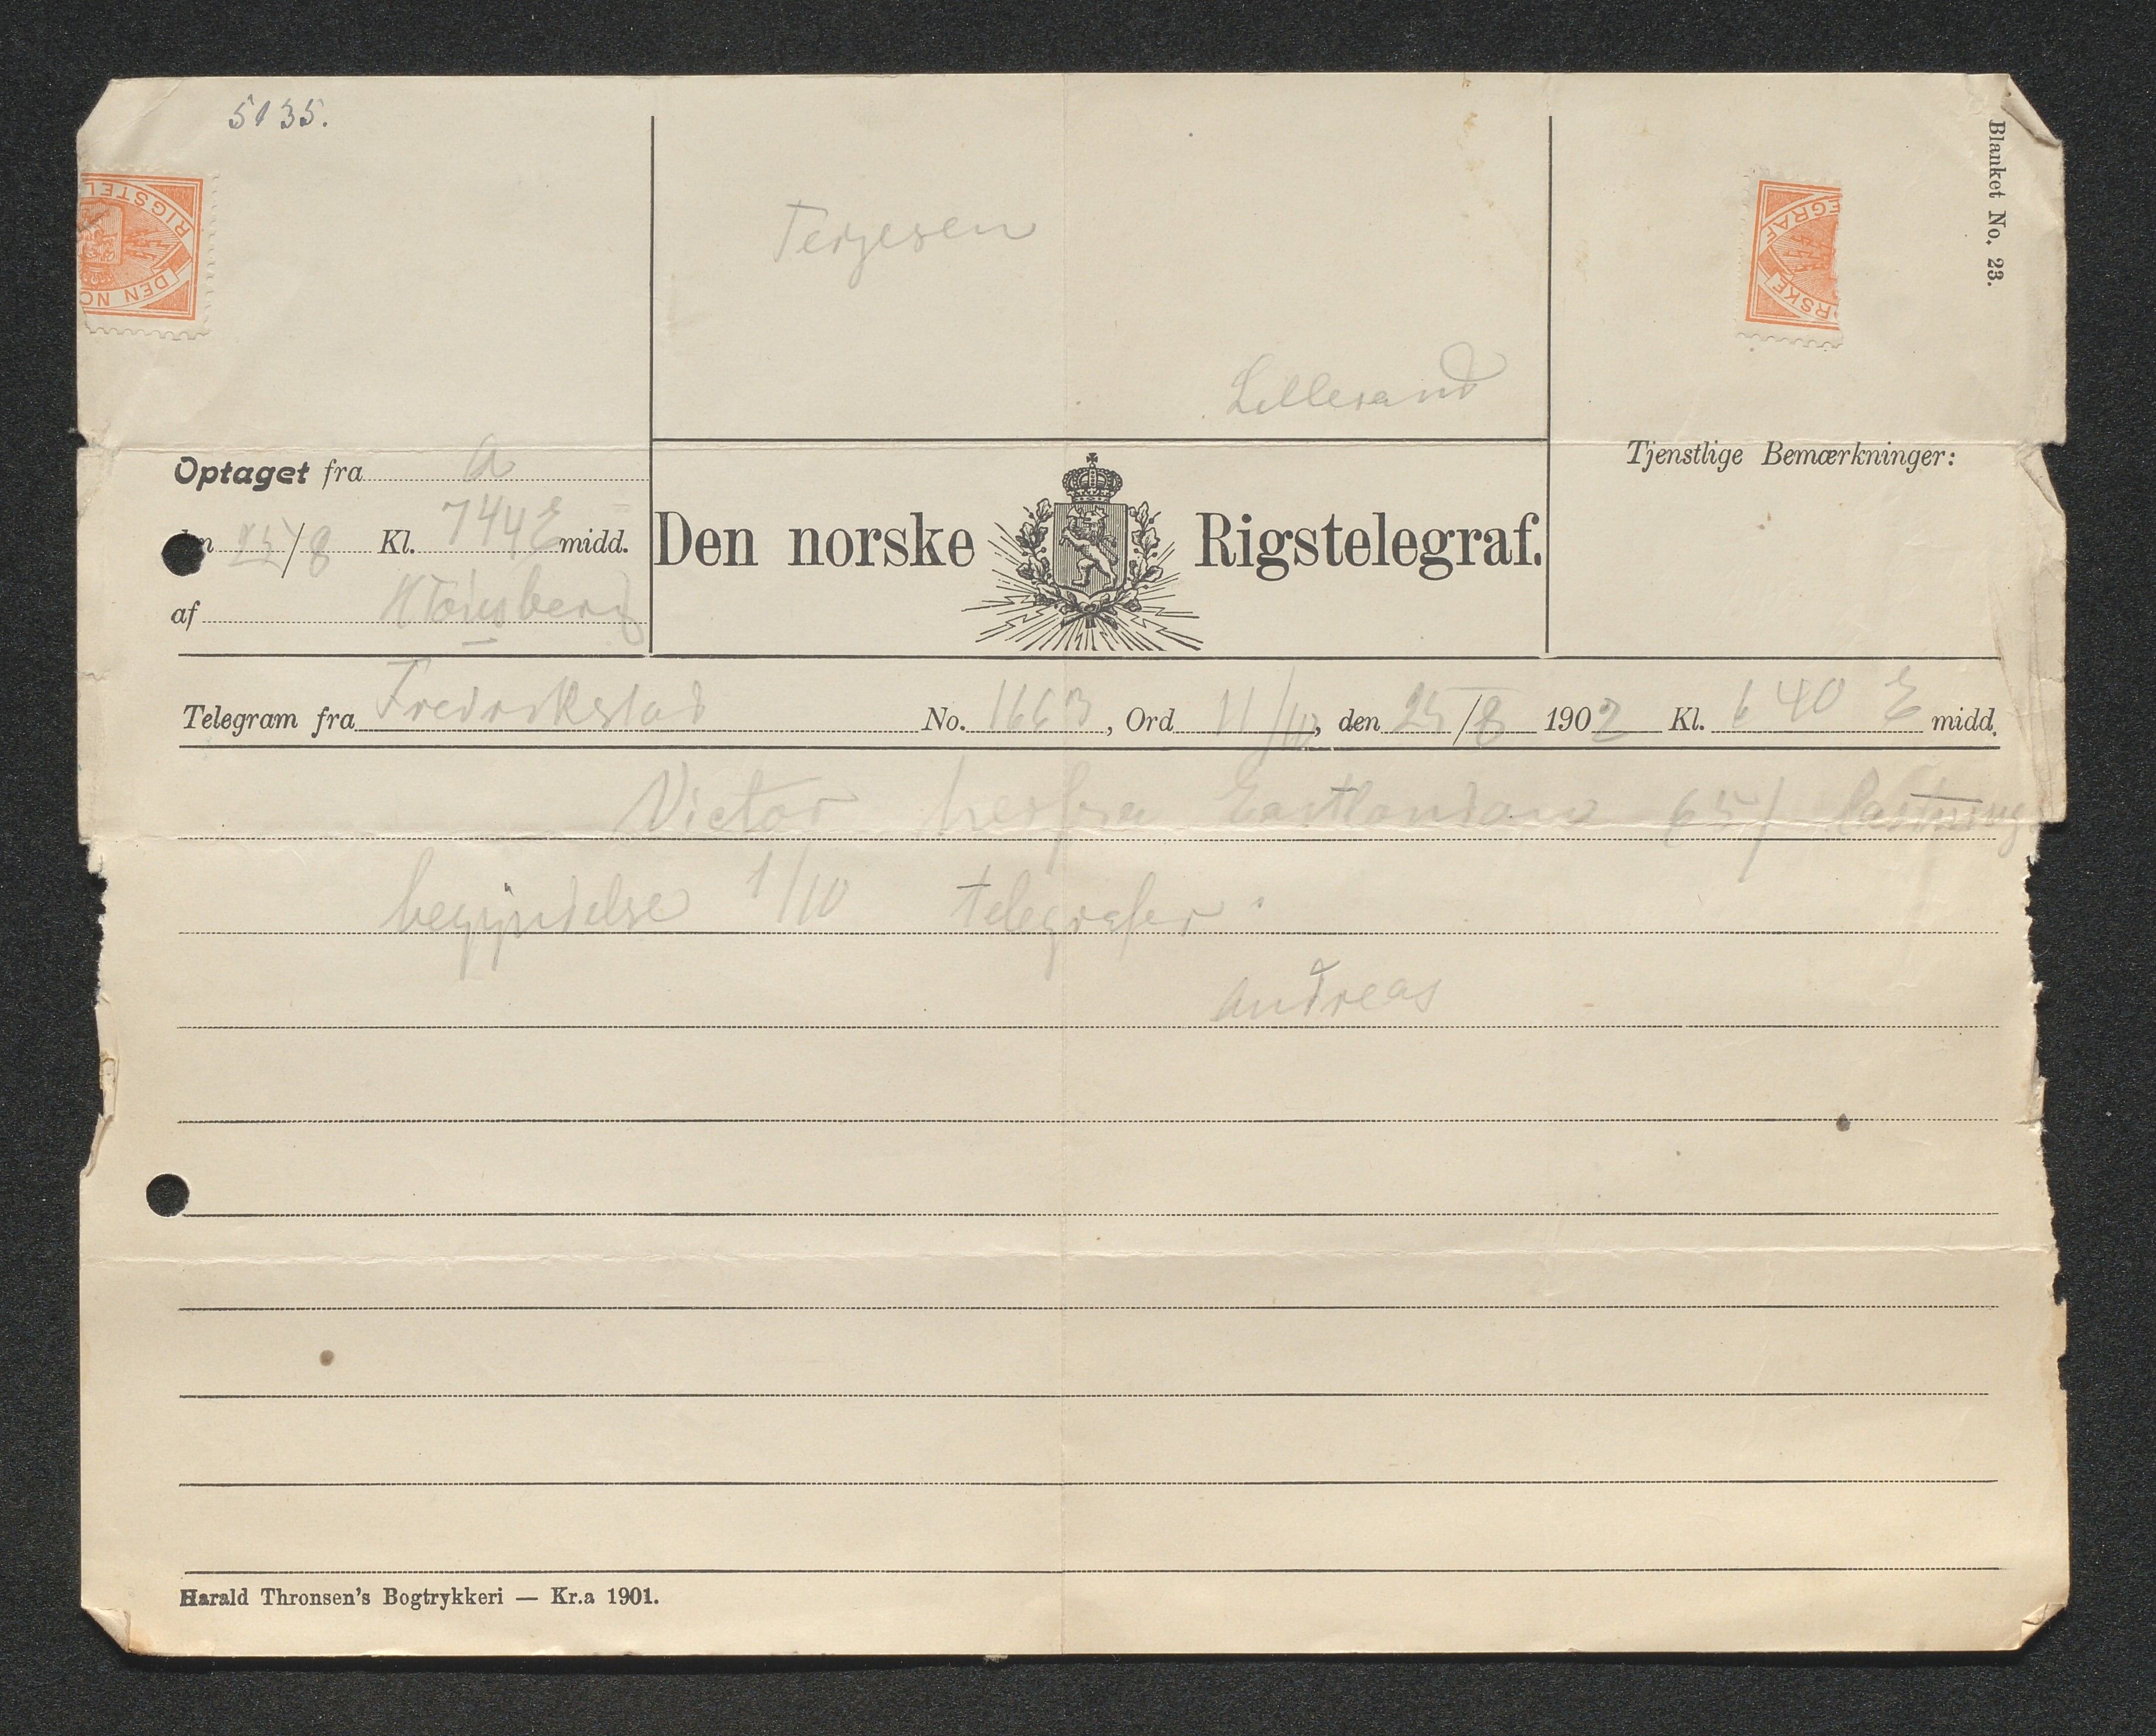 5135.
Blanket No. 23.
RIGSTEL
DEN NO
EGRAF
RSKE
Terjesen
Lillesand
Optaget fra A
Tjenstlige Bemærkninger:
den 25/8 Kl. 744 E midd.
Den norske Rigstelegraf.
af
Telegram fra Fredrikstad No. 1663, Ord 11/10, den 25/8 1902 Kl. 640 E midd.
Victor herfra Eastlondon 65/ lastnings
begyndelse 1/10 telegrafer.
Andreas
Harald Thronsen's Bogtrykkeri — Kr.a 1901.